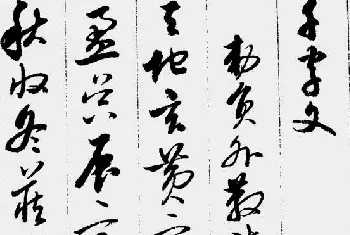 千字文
勅員外散
天地玄黄
盈昃辰
秋收冬藏